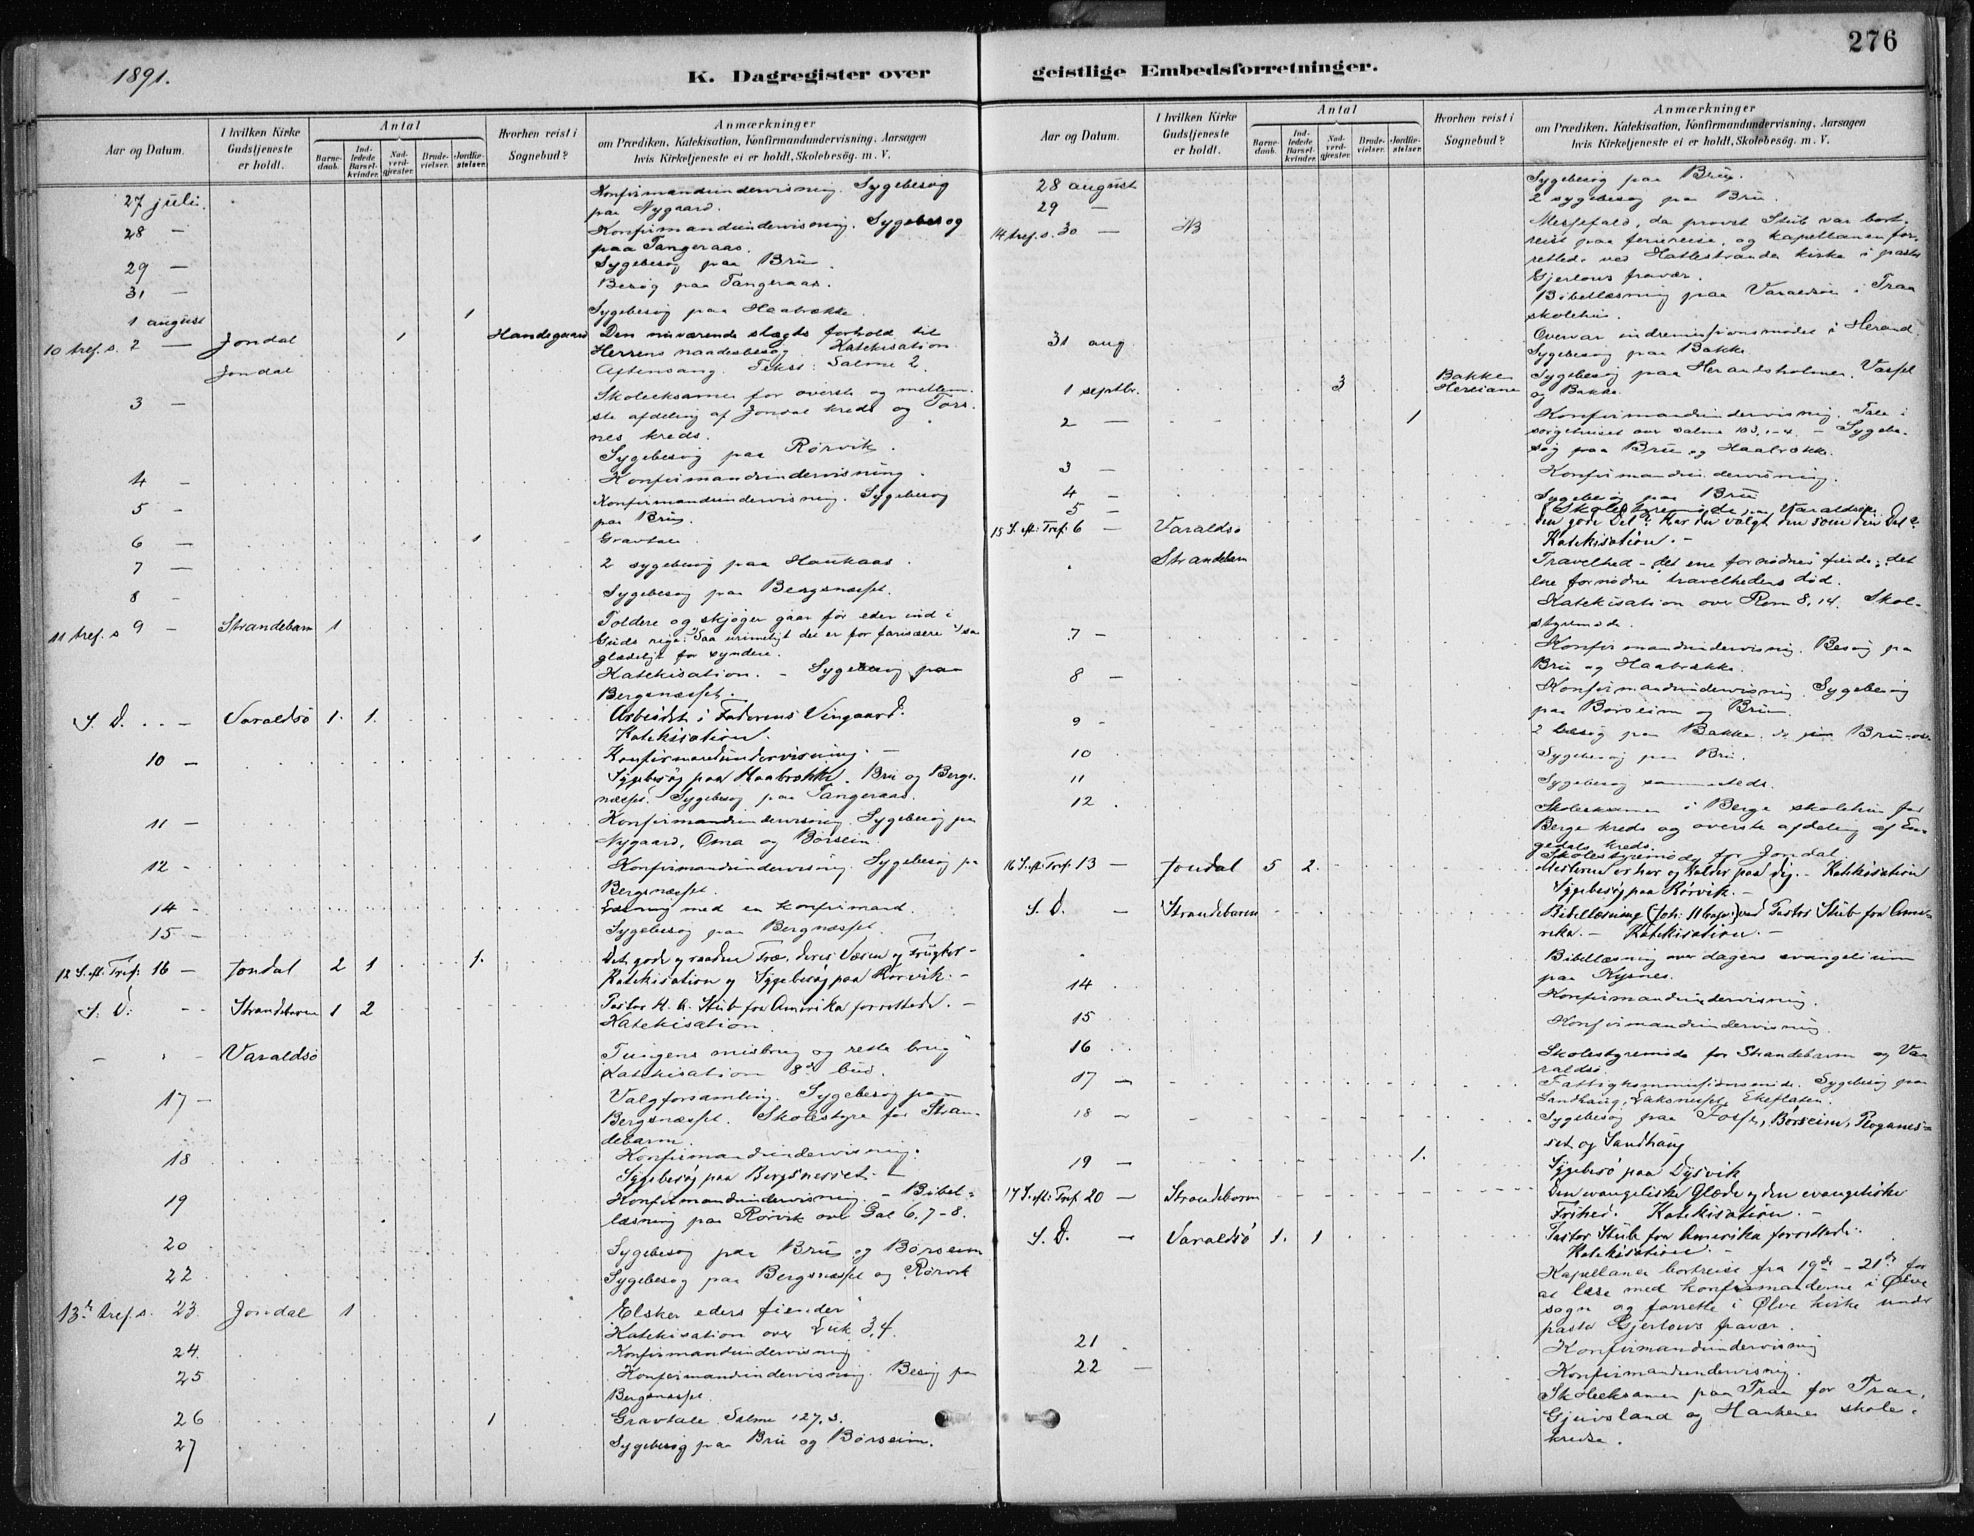 276
1891.
K. Dagregister over geistlige Embedsforretninger.
Aar og Datum.
I hvilken Kirke Gudstjeneste er holdt.
Antal
Barnedaab.
Indledede Barselkvinder.
Nadverdgjester.
Brudevielser.
Jordfæstelser.
Hvorhen reist i Sognebud?
Anmærkninger
om Prædiken, Katekisation, Konfirmandundervisning, Aarsagen
hvis Kirketjeneste ei er holdt, Skolebesög. m. V.
27 juli. Konfirmandundervisning. Sygebesøg
paa Nygaard.
28 - Konfirmandundervisning. Sygebesøg
paa Tangeraas.
29 - Sygebesøg paa Bru.
31 - Besøg paa Tangeraas.
1 august 1 Sygebesøg paa Haabrække.
10 tref. s. 2 - Jondal 1 Handegaard Den nuværende slægts forhold til
Herrens naadesbesøg. Katekisation
Jondal Aftensang. Tekst: Salme 2.
3 - Skoleeksamen for øverste og mellem-
ste afdeling af Jondal kreds og Tors-
nes kreds.
Sygebesøg paa Rørvik.
4 - Konfirmandundervisning.
5 - Konfirmandundervisning. Sygebesøg
paa Bru.
6 - 1 Gravtale
7 - 2 sygebesøg paa Haukaas.
8 Sygebesøg paa Bergsnæsset.
11 tref. s 9 - Strandebarm 1 Toldere og skjøger gaar før eder ind i
Guds rige: Saa urimeligt det er for farisæere, saa
glædeligt for syndere.
Katekisation. - Sygebesøg paa
Bergsnæsset.
S. D. - Varaldsö 1. 1. Arbeidet i Faderens Vingaard.
Katekisation.
10 - Konfirmandundervisning. -
Sygebesøg paa Haabrække, Bru og Bergs-
næsset. Sygebesøg paa Tangeraas.
11 - Konfirmandundervisning. Sygebesøg paa
Nygaard, Oma og Børseim
12 - Konfirmandundervisning. Sygebesøg paa
Bergsnæsset.
14 - Læsning med en konfirmand.
15 - Sygebesøg paa Bergnæsset.
12 S. eft. Tref. 16 - Jondal 2 1 1. Det gode og raadne Træ, deres Væsen og Frugter -
Katekisation og Sygebesøg paa Rørvik. -
S. D: - Strandebarm 1 2 Pastor H. A. Stub fra Amerika forrettede. -
Katekisation.
- Varaldsö Tungens misbrug og rette brug"
Katekisation 8de bud.
17 - Valgforsamling. Sygebesøg paa
Bergsnæsset. Skolestyre for Stran-
debarm.
18 Konfirmandundervisning.
Sygebesøg paa Bergsnesset. -
19 Konfirmandundervisning. - Bibel-
læsning paa Rørvik over Gal 6, 7-8.
20 Sygebesøg paa Bru og Børseim
22 Sygebesøg paa Bergsnæsset og Rørvik
13de tref. s. 23 Jondal 1 Elsker eders fiender"
Katekisation over Luk. 3,4.
24 Konfirmandundervisning
25 Konfirmandundervisning. Besøg paa
Bergsnæsset.
26 1 Gravtale. Salme 127,3.
27 Sygebesøg paa Bru og Børseim.
Aar og Datum.
I hvilken Kirke Gudstjeneste er holdt.
Antal
Barnedaab.
Indledede Barselkvinder.
Nadverdgjester.
Brudevielser.
Jordfæstelser.
Hvorhen reist i Sognebud?
Anmærkninger
om Prædiken, Katekisation, Konfirmandundervisning, Aarsagen
hvis Kirketjeneste ei er holdt, Skolebesög. m. V.
28 august Sygebesøg paa Bru.
29 - 2 sygebesøg paa Bru.
14 tref. s. 30 - NB Messefald, da provst Stub var bort-
reist paa feriereise, og kapellanen for-
rettede ved Hatlestrands kirke i pastor
Gjerløws fravær.
Bibellæsning paa Varaldsøen i Traa
skolehus.
31 aug Overvar indremissionsmødet i Herand
Sygebesøg paa Bakke.
1 septbr. 3 Bakke Sygebesøg paa Herandsholmen,
Hereiane og Bakke.
2 - 1 Konfirmandundervisning. Tale i
sørgehuset over Salme 103, 1-4. - Sygebe-
søg paa Bru og Haabrække.
3 - Konfirmandundervisning.
4 - Sygebesøg paa Bru
5 - Skolestyremøde paa Varaldsøen.
15 S. eft. Tref. 6 - Varaldsö Den gode Del? Har du valgt den som din Del?
Katekisation. -
Strandebarm Travelhed - det ene fornødnes fiende; det
ene fornødne travelhedens død.
Katekisation over Rom 8, 14. Skole-
styremøde.
7 - Konfirmandundervisning. Besøg paa
Bru og Haabrække.
8 - Konfirmandundervisning. Sygebesøg
paa Børseim og Bru.
9 - 2 besøg paa Bakke
10 Sygebesøg paa Bru.
11 Sygebesøg sammesteds.
12 Skoleeksamen i Berge skolehus for
Berge kreds og øverste afdeling af En-
gedals kreds.
Skolestyremøde for Jondal
16 S. eft. Tref. 13 - Jondal 5 2. Mesteren er her og kalder paa dig. - Katekisation
Sygebesøg paa Rørvik. -
S. D. - Strandebarm Bibellæsning (Joh. 11 kap.) ved Pastor Stub fra Ame-
rika. - Katekisation. -
Bibellæsning over dagens evangelium
paa Kysnes.
14 Konfirmandundervisning.
15 Konfirmandundervisning
16 Skolestyremøde for Strandebarm og Va-
raldsø
17 - Fattigkommissionsmøde. Sygebesøg paa
Sandhaug, Laksnesset, Ekeflaten.
18 - Sygebesøg paa Fosse, Børseim,
og Sandhaug
19 - 1. Sygebesø paa Dysvik
17 S. eft. Tref. 20 - Strandebarm Den evangeliske Glæde og den evangeliske
Frihed. Katekisation. -
S. D. - Varaldsö 1. 1 Pastor Stub fra Amerika forrettede.
Katekisation. -
Kapellanen bortreist fra 19de - 21de for
at læse med konfirmanderne i Ølve
sogn og forrette i Ølve kirke under
pastor Gjerløws fravær.
21 Konfirmandundervisning
22 - Konfirmandundervisning.
Skoleeksamen paa Traa for Traa,
Gjuvsland og skole-
kredse.